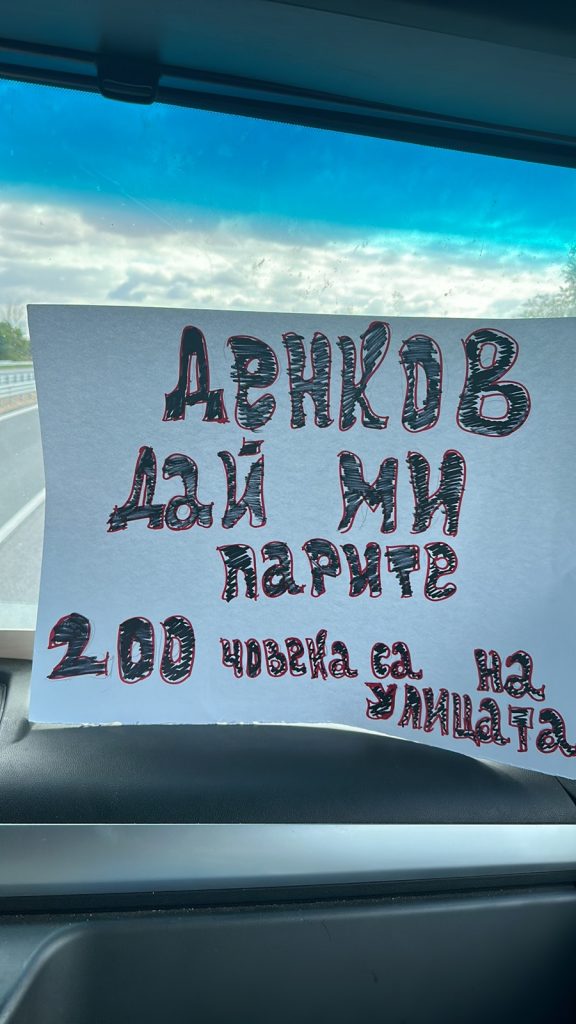 ДЕНКОВ
ДАЙ МИ
ПАРИТЕ
200 ЧОВЕКА СА НА
УЛИЦАТА